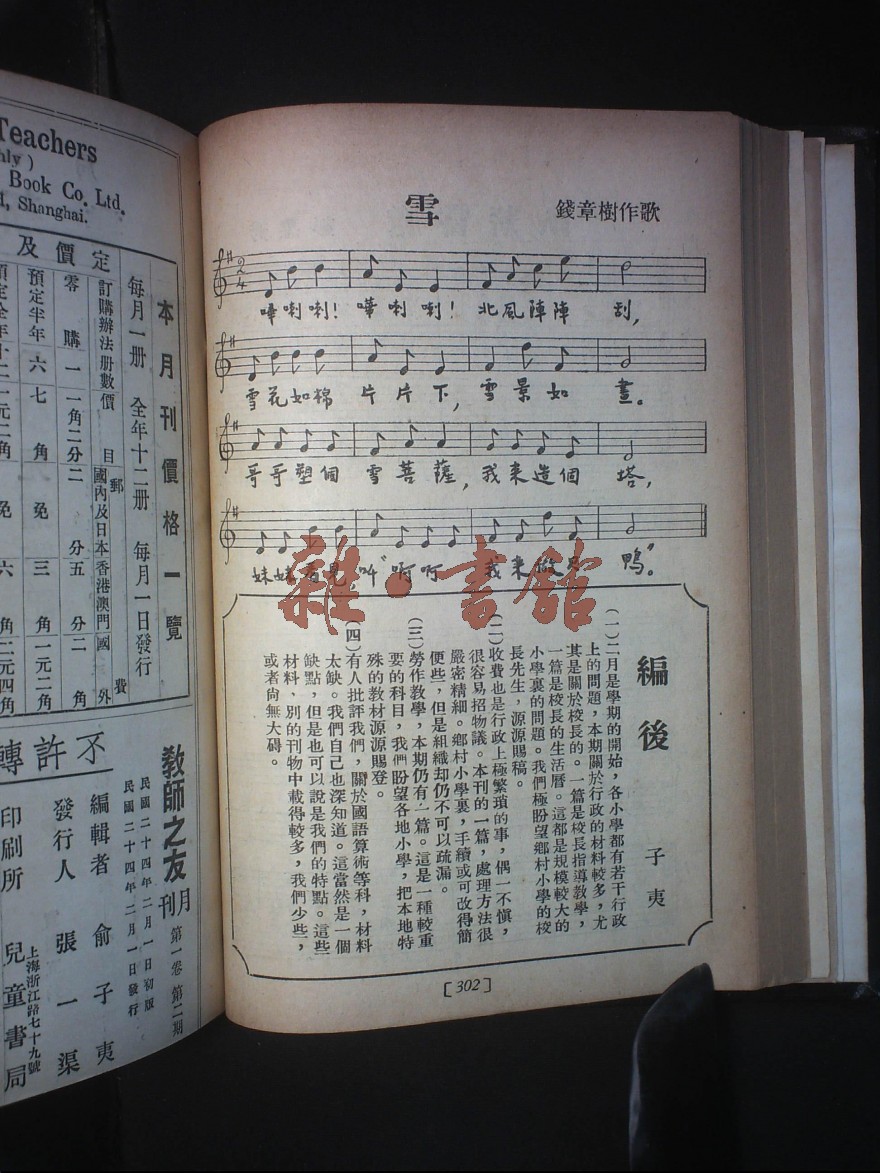 雪
錢章樹作歌
嘩喇喇!嘩喇喇!北風陣陣刮,
雪花如棉片片下,雪景如畫。
哥哥塑個雪菩薩,我来造個塔,
妹妹看見,吖“啊呵我来做只鴨”。
雜·書館
編後
子夷
(一)二月是學期的開始,各小學都有若干行政
上的問題,本期關於行政的材料較多,尤
其是關於校長的。一篇是校長指導教學,
一篇是校長的生活曆。這都是規模較大的
小學裏的問題。我們極盼望鄉村小學的校
長先生,源源賜稿。
(二)收費也是行政上極繁瑣的事,偶一不愼,
很容易招物議。本刊的一篇,處理方法很
嚴密精細。鄉村小學裏,手續或可改得簡
便些,但是組織却仍不可以疏漏。
(三)勞作教學,本期仍有一篇。這是一種較重
要的科目,我們盼望各地小學,把本地特
殊的教材源源賜登。
(四)有人批評我們,關於國語算術等科,材料
太缺。我們自己也深知道。這當然是一個
缺點,但是也可以說是我們的特點。這些
材料,別的刊物中載得較多,我們少些,
或者尙無大碍。
[302]
Teachers
Book Co. Ltd.
Shanghai.
定價及
本月刊價格一覽
每月一册 全年十二册 每月一日發行
訂購辦法册數價目
郵費
國內及日本
香港澳門
國外
零購 一 一角二分 二分 五分 二角
預定半年 六 七角 免 三角 一元二角
不許轉
教師之友月刊 第一卷第二期
民國二十四年二月一日初版
民國二十四年二月一日發行
編輯者 俞子夷
發行人 張一渠
上海浙江路七十九號
印刷所 兒童書局